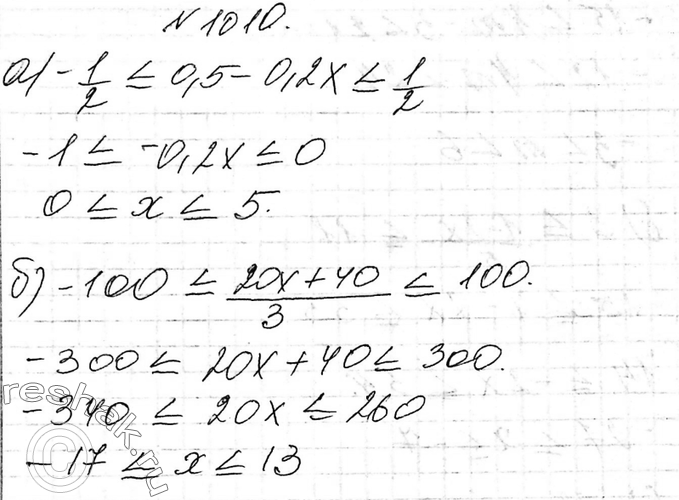 №1010.
а) -1/2 ≤ 0,5 - 0,2x ≤ 1/2
-1 ≤ -0,2x ≤ 0
0 ≤ x ≤ 5.
б) -100 ≤ (20x+40)/3 ≤ 100.
-300 ≤ 20x + 40 ≤ 300.
-340 ≤ 20x ≤ 260
-17 ≤ x ≤ 13
reshak.ru